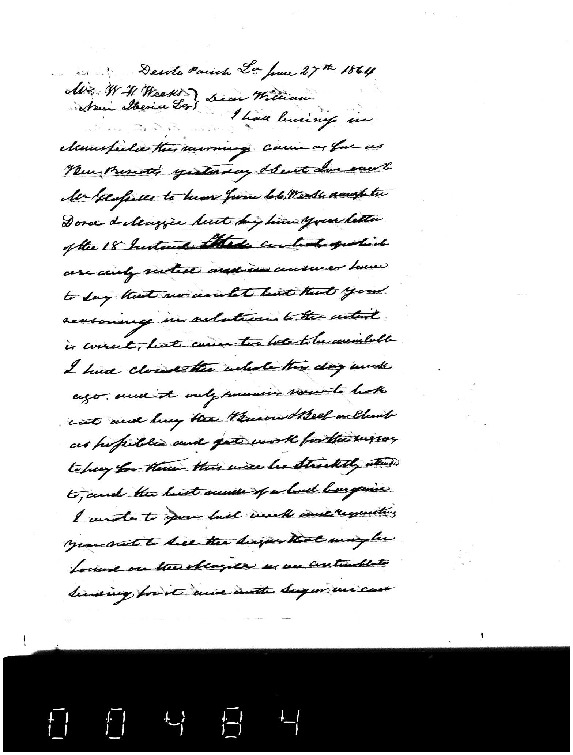 Desoto Parish La June 27th 1864
Mr. W F Weeks
New Iberia La } Dear William
I had business in
Mansfield this morning came as far as
Ben yesterday & sent Jno over to
Mr to hear from
Dora & Maggie but by him your letter
of the 18 Instant contents of which
are duly noted and in answer have
to say that no doubt but that your
reasoning in relation to the
is correct, but came too late to be available
I had closed the whole this day week
ago and it only remains now to look
out and buy the Bacon & Beef as cheap
as possible and get work for the
to pay for them this will be Strictly attended
to, and the best made of a bad bargain
I wrote to you last week and requesting
you not to sell the Sugar that may be
found on the as we
sending for it and with Sugar we can
00484